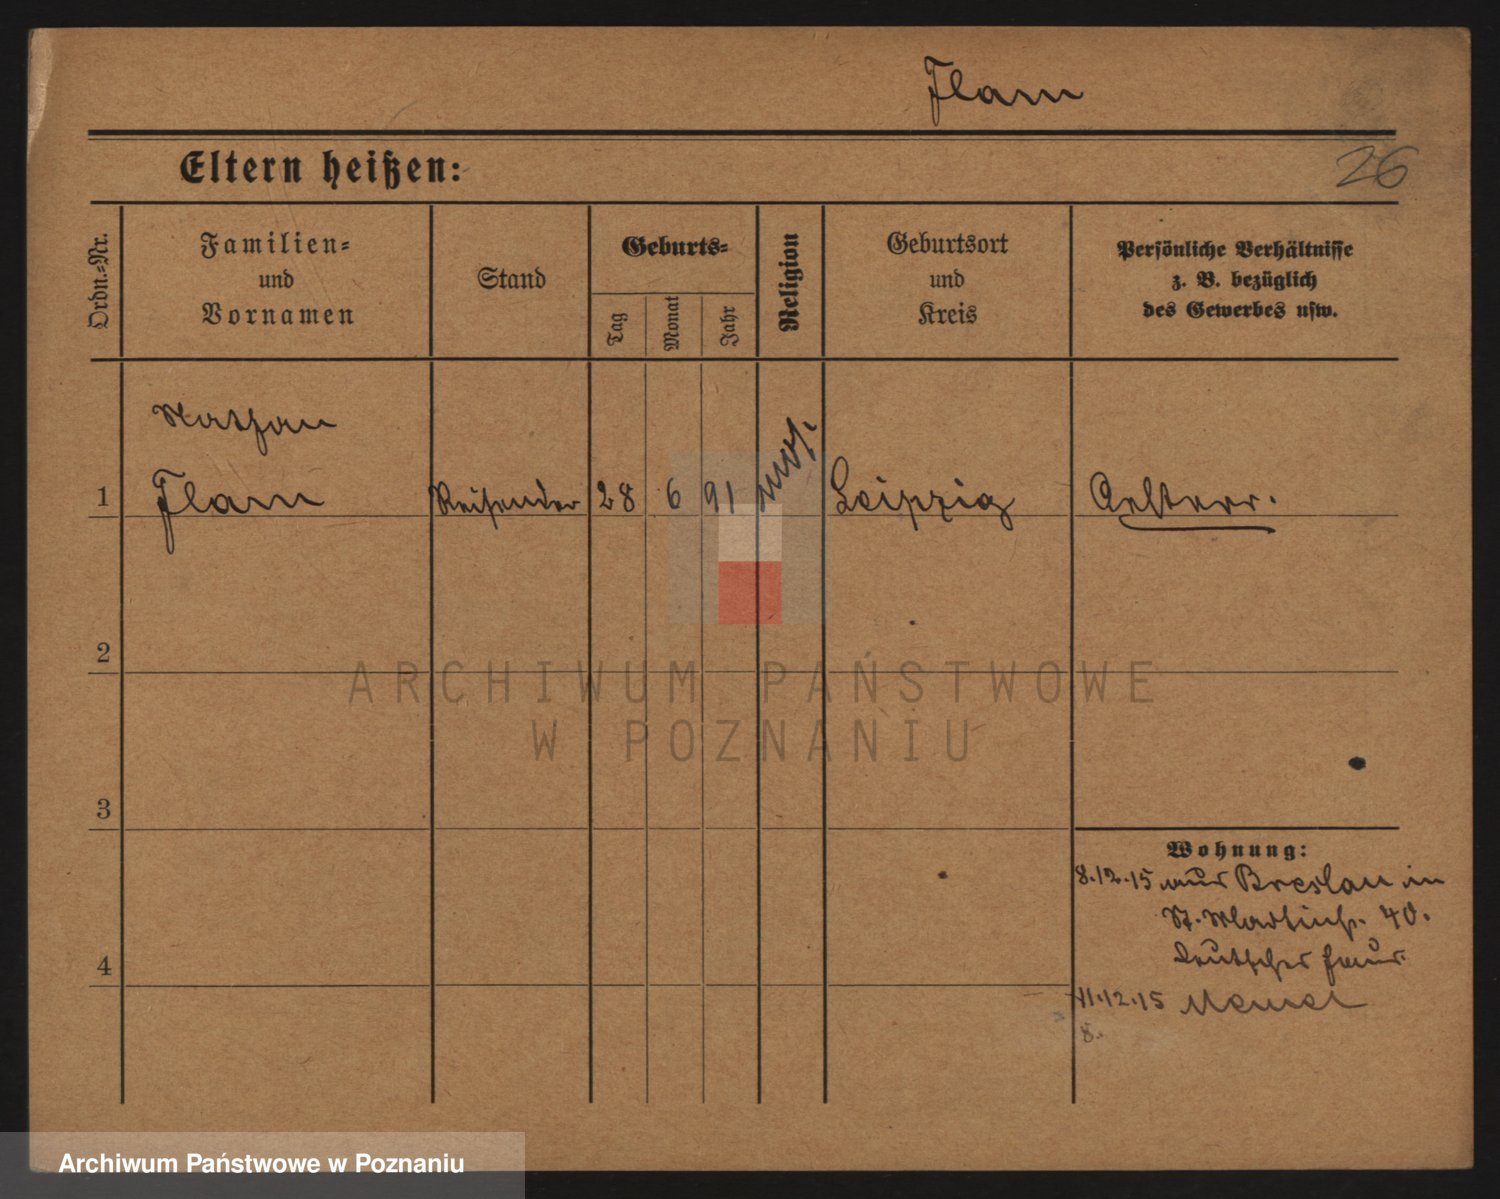 Flam
Eltern heißen:
26
Ordn.-Nr.
Familien-
und
Vornamen
Stand
Geburts-
Tag
Monat
Jahr
Religion
Geburtsort
und
Kreis
Persönliche Verhältnisse
z. B. bezüglich
des Gewerbes usw.
Nathan
1 Flam Reisender 28 6 91 mos. Leipzig Oesterr.
2
ARCHIWUM PAŃSTWOWE
W POZNANIU
3
Wohnung:
8.12.15 aus Breslau in
St. Martinstr. 40.
Deutscher Haus.
4
11.12.15 Memel
8.
Archiwum Państwowe w Poznaniu